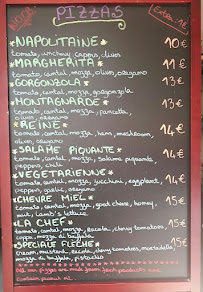 PIZZAS
Extra: 1€
★NAPOLITAINE★ 10€
tomato, anchovy, capers, olives
★MARGHERITA★ 11€
tomato, cantal, mozza, olives, oregano
★GORGONZOLA★ 13€
tomato, cantal, mozza, gorgonzola
★MONTAGNARDE★ 13€
tomato, cantal, mozza, pancetta,
olives, oregano
★REINE★ 14€
tomato, cantal, mozza, ham, mushroom,
olives, oregano
★SALAME PIQUANTE★ 14€
tomato, cantal, mozza, salame piquante,
pepper, olives
★VEGETARIENNE★ 14€
tomato, cantal, mozza, zucchini, eggplant,
pepper, garlic, oregano
★CHEVRE MIEL★ 15€
tomato, cantal, mozza, goat cheese, honey,
nut, lamb's lettuce
★LA CHEF★ 15€
tomato, cantal, mozza, rucola, cherry tomatoes,
mozza di buffala
★SPECIALE FLECHE★ 15€
cream, mustard, rucola, cherry tomatoes, mortadella,
mozza di buffala, pistachio
All our pizzas are made from fresh products and
contain peanut oil.